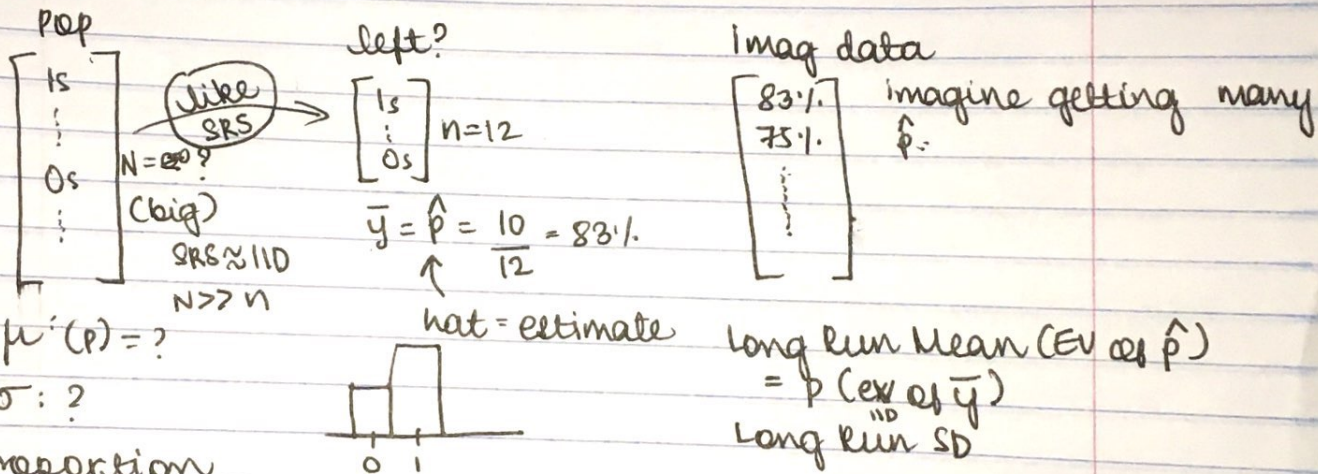 pop
1s
⋮
0s
⋮
like
SRS
N=∞?
(big)
SRS≈IID
N>>n
μ (p) = ?
σ : ?
left?
1s
⋮
0s
n=12
ȳ = p̂ = 10/12 = 83%
hat = estimate
0 1
imag data
83%
75%
⋮
imagine getting many
p̂.
Long Run Mean (EV of p̂)
= p (ev of ȳ)
IID
Long Run SD